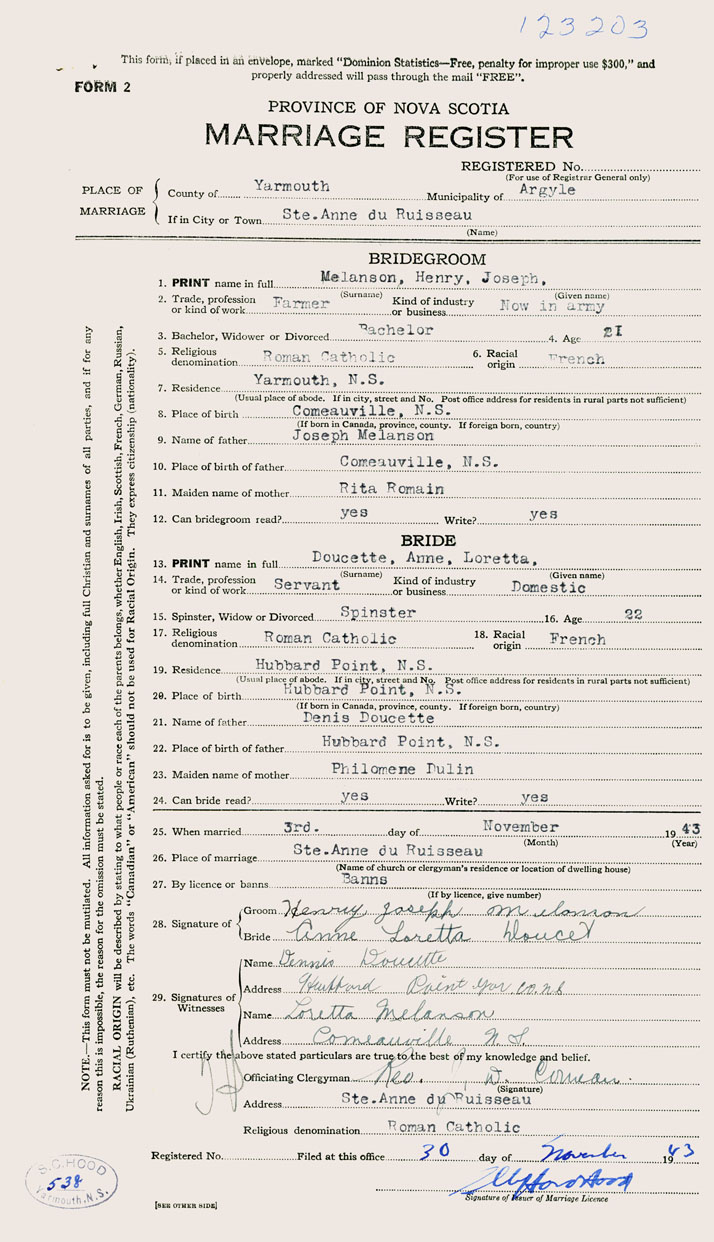 123203
This form, if placed in an envelope, marked "Dominion Statistics—Free, penalty for improper use $300," and
properly addressed will pass through the mail "FREE".
FORM 2
PROVINCE OF NOVA SCOTIA
MARRIAGE REGISTER
REGISTERED No.
(For use of Registrar General only)
PLACE OF MARRIAGE
County of Yarmouth Municipality of Argyle
If in City or Town Ste.Anne du Ruisseau
(Name)
BRIDEGROOM
1. PRINT name in full Melanson, Henry, Joseph,
(Surname) (Given name)
2. Trade, profession or kind of work Farmer Kind of industry or business Now in army
3. Bachelor, Widower or Divorced Bachelor 4. Age 2I
5. Religious denomination Roman Catholic 6. Racial origin French
7. Residence Yarmouth, N.S.
(Usual place of abode. If in city, street and No. Post office address for residents in rural parts not sufficient)
8. Place of birth Comeauville, N.S.
(If born in Canada, province, county. If foreign born, country)
9. Name of father Joseph Melanson
10. Place of birth of father Comeauville, N.S.
11. Maiden name of mother Rita Romain
12. Can bridegroom read? yes Write? yes
BRIDE
13. PRINT name in full Doucette, Anne, Loretta,
(Surname) (Given name)
14. Trade, profession or kind of work Servant Kind of industry or business Domestic
15. Spinster, Widow or Divorced Spinster 16. Age 22
17. Religious denomination Roman Catholic 18. Racial origin French
19. Residence Hubbard Point, N.S.
(Usual place of abode. If in city, street and No. Post office address for residents in rural parts not sufficient)
20. Place of birth Hubbard Point, N.S.
(If born in Canada, province, county. If foreign born, country)
21. Name of father Denis Doucette
22. Place of birth of father Hubbard Point, N.S.
23. Maiden name of mother Philomene Dulin
24. Can bride read? yes Write? yes
25. When married 3rd. day of November 19 43
(Month) (Year)
26. Place of marriage Ste.Anne du Ruisseau
(Name of church or clergyman's residence or location of dwelling house)
27. By licence or banns Banns
(If by licence, give number)
28. Signature of
Groom Henry Joseph Melanson
Bride Anne Loretta Doucet
29. Signatures of Witnesses
Name Dennis Doucette
Address Hubbard Point Yar co. ns
Name Loretta Melanson
Address Comeauville N.S.
I certify the above stated particulars are true to the best of my knowledge and belief.
Officiating Clergyman Rev. D. Comeau
(Signature)
Address Ste.Anne du Ruisseau
Religious denomination Roman Catholic
Registered No. Filed at this office 30 day of November 19 43
Signature of Issuer of Marriage Licence
[SEE OTHER SIDE]
S.C. HOOD
538
Yarmouth, N.S.
NOTE.—This form must not be mutilated. All information asked for is to be given, including full Christian and surnames of all parties, and if for any
reason this is impossible, the reason for the omission must be stated.
RACIAL ORIGIN will be described by stating to what people or race each of the parents belongs, whether English, Irish, Scottish, French, German, Russian,
Ukrainian (Ruthenian), etc. The words "Canadian" or "American" should not be used for Racial Origin. They express citizenship (nationality).